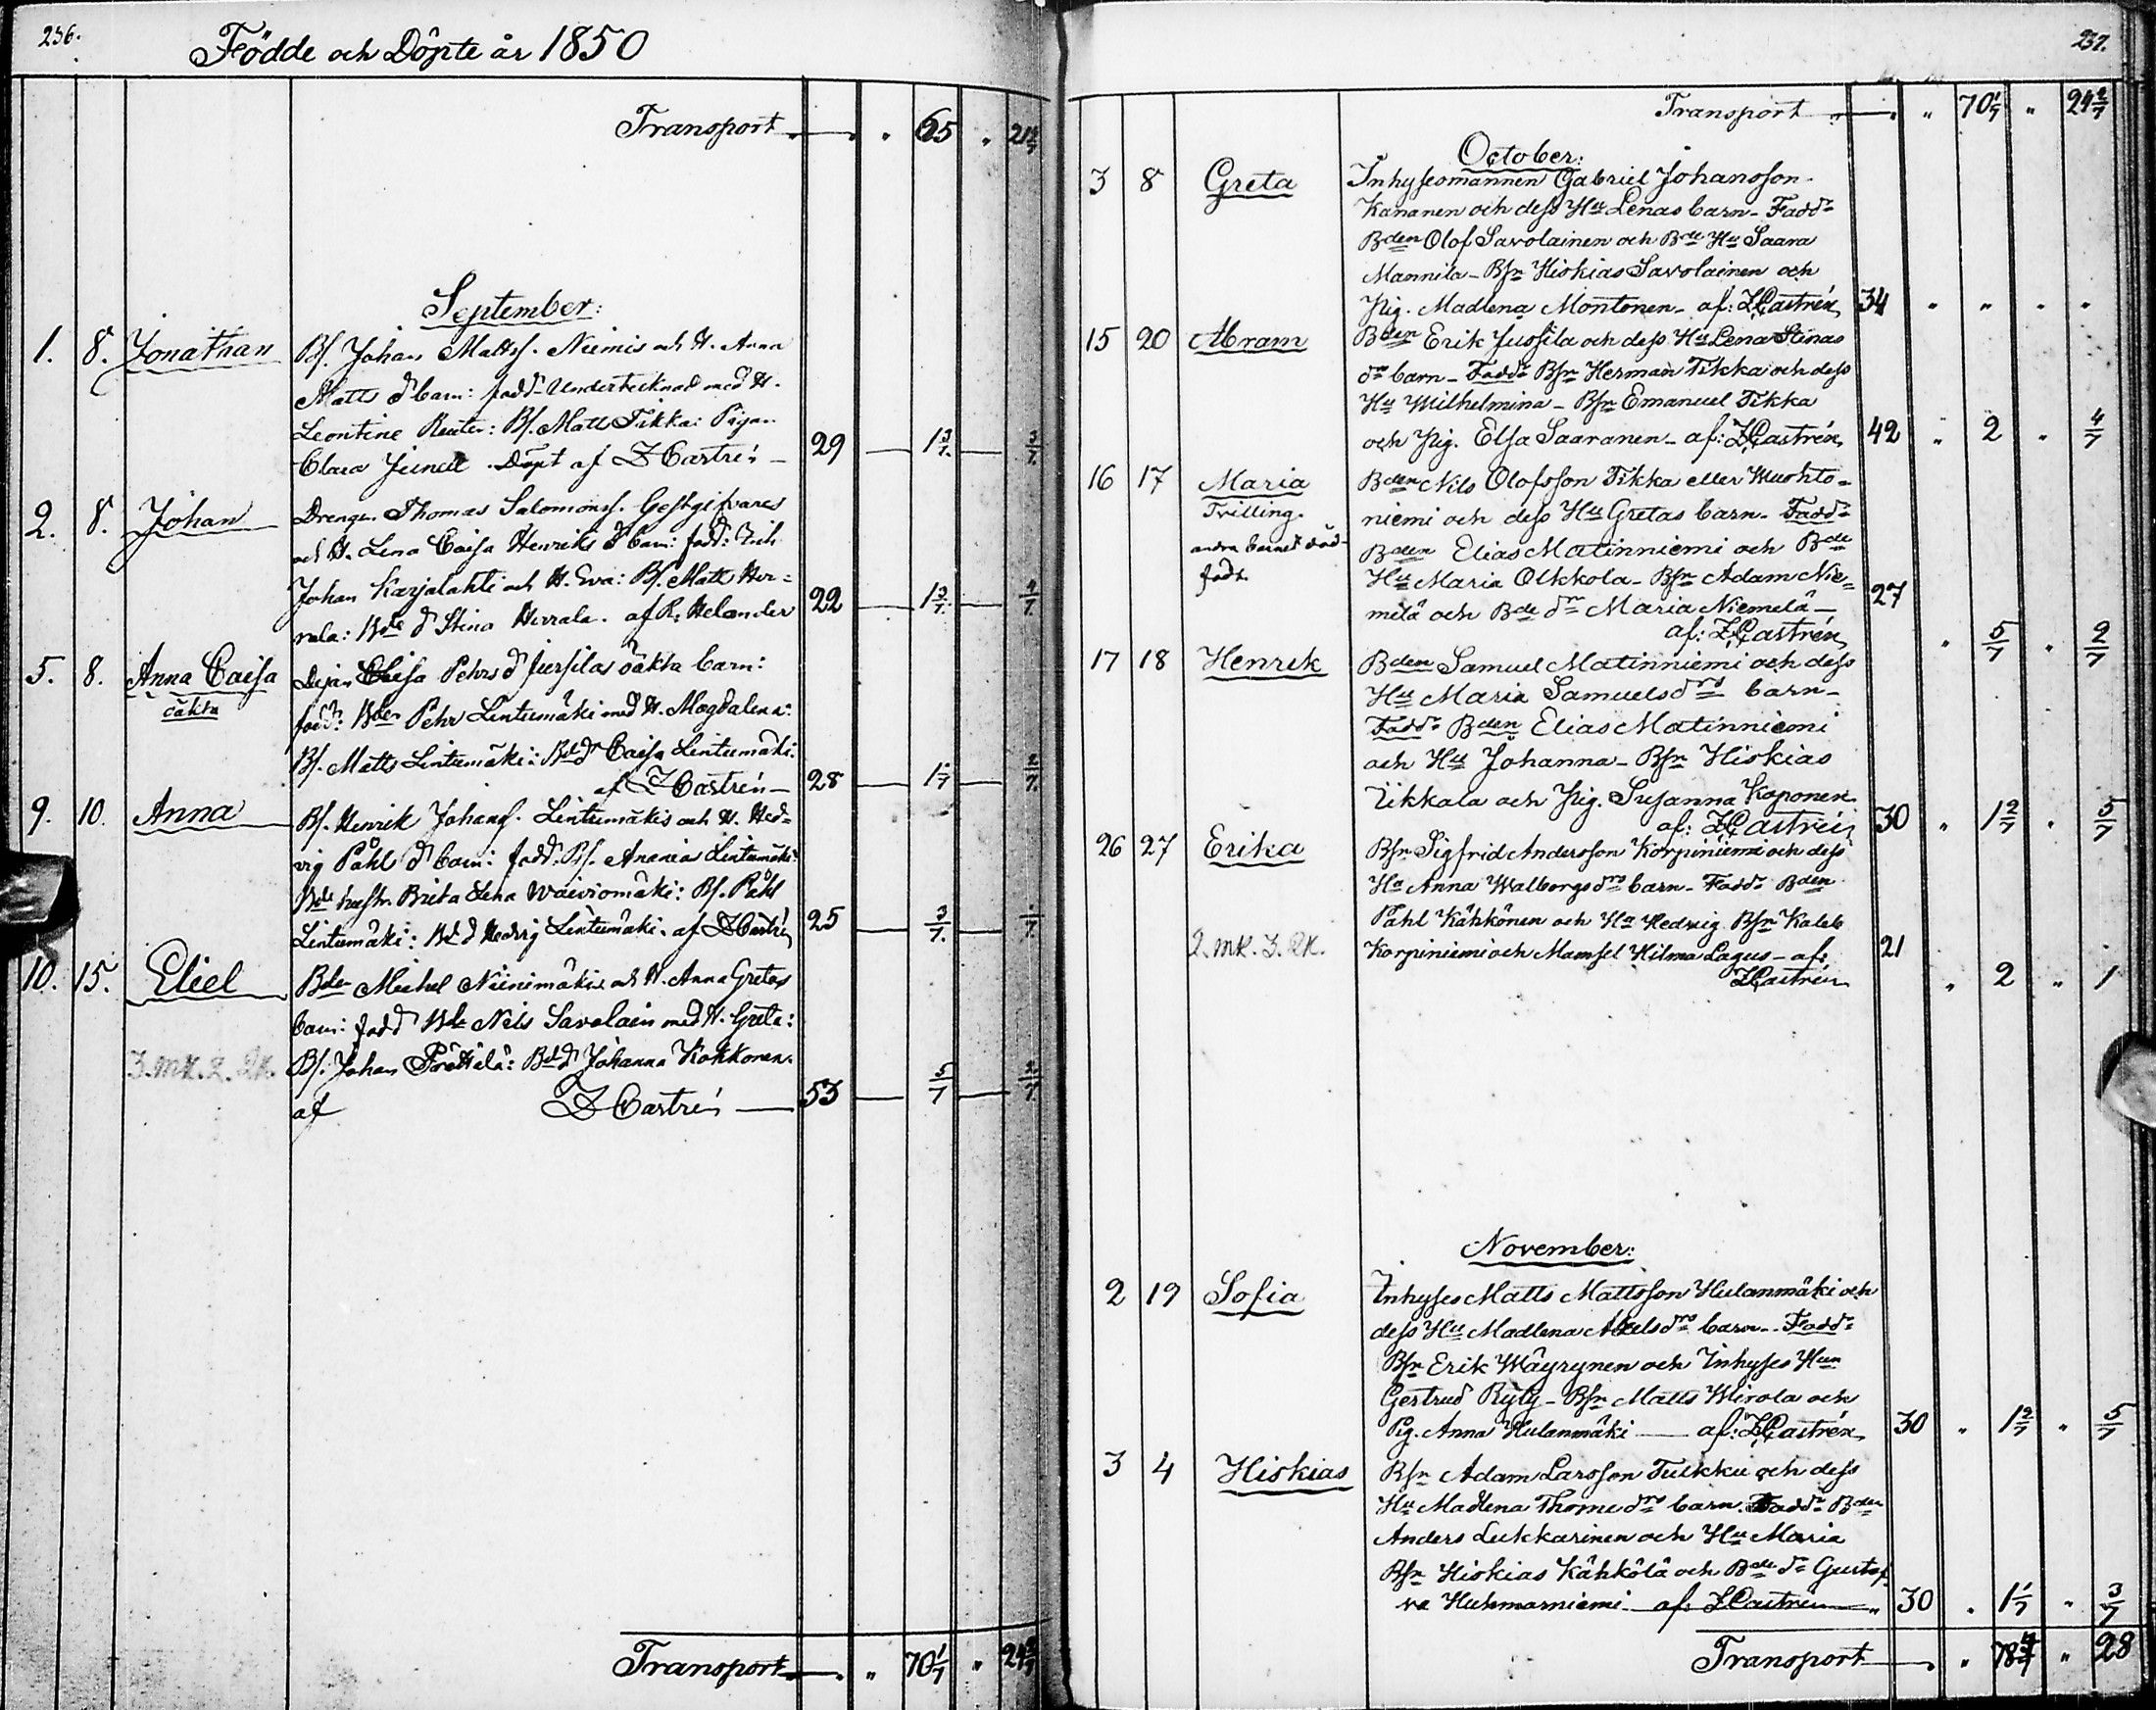 236.
Födde och Döpte år 1850
Transport 65 21
September:
1. 8. Jonathan Bf. Johan Mattss. Niemis och H. Anna
Matts d barn: fadd. Undertecknad med H.
Leontine Reuter: Bf. Matts Tikka: Pigan
Clara Junell. Döpt af Z Castrén 29 1 3/7 3/7
2. 8. Johan Drengen Thomas Salomonss. Gestgifvares
och H. Lena Caisa Henriks d barn: fadd:
Johan Karjalahti och H. Eva: Bf. Matts Her-
rala: Bde d Stina Herrala. af R. Helander 22 1 3/7 4/7
5. 8. Anna Caisa
oäkta
Caisa Pehrs d Jussilas oäkta barn:
fadd: Bden Pehr Lintumäki med H. Magdalena:
Bf. Matts Lintumäki: Bde d Caisa Lintumäki:
af Z Castrén 28 2/7
9. 10. Anna Bf. Henrik Johans. Lintumäkis och H. Hed-
vig Påhl d barn: fadd. Bf. Anania Lintumäki:
Bde hustr. Brita Lena Waiviomäki: Bf. Påhl
Lintumäki: Bde d Hedvig Lintumäki. af Z Castrén 25 3/7
10. 15. Eliel Bden Michel Niinimäkis och H. Anna Gretas
barn: fadd Bde Nils Savolain med H. Greta:
3. mk. 2. Qk. Bf. Johan Pröttälä: Bde d Johanna Kokkonen.
af Z Castrén 53 5/7 2/7
Transport " 70 1/7 " 24 2/7
237.
Transport " 70 1/7 " 24 2/7
October:
3 8 Greta Inhysesmannen Gabriel Johansson
Kananen och dess Hu Lenas barn - Faddr
Bden Olof Savolainen och Bde Hu Saara
Mannila - Bsn Hiskias Savolainen och
Pig. Madlena Montonen - af: Z Castrén 34 " " " "
15 20 Abram Bden Erik Jussila och dess Hu Lena Stinas
dr barn - Faddr Bsn Herman Tikka och dess
Hu Wilhelmina - Bsn Emanuel Tikka
och Pig. Elsa Saaranen - af: Z Castrén 42 " 2 " 4/7
16 17 Maria
Tvilling.
andra barnet död-
födt.
Bden Nils Olofsson Tikka eller Wuohto-
niemi och dess Hu Gretas barn - Faddr
Bden Elias Matinniemi och Bde
Hu Maria Olkkola - Bsn Adam Nie-
melä och Bde dr Maria Niemelä - 27
af: Z Castrén " 5/7 " 2/7
17 18 Henrik Bden Samuel Matinniemi och dess
Hu Maria Samuelsdrs barn -
Faddr Bden Elias Matinniemi
och Hu Johanna - Bsn Hiskias
Tikkala och Pig. Susanna Koponen
af: Z Castrén 30 " 1 2/7 " 5/7
26 27 Erika Bsn Sigfrid Andersson Korpiniemi och dess
Hu Anna Walborgsdrs barn - Faddr Bden
Påhl Kähkönen och Hu Hedwig Bsn Kaleb
2. mk. 3. Qk. Korpiniemi och Mamsel Hilma Lagus - af: 21
Z Castrén " 2 " 1
November:
2 19 Sofia Inhyses Matts Mattsson Hulanmäki och
dess Hu Madlena Axelsdrs barn - Faddr
Bsn Erik Wäyrynen och Inhyses Hun
Gertrud Ryty - Bsn Matts Wirola och
Pig. Anna Hulanmäki — af: Z Castrén 30 " 1 2/7 " 5/7
3 4 Hiskias Bsn Adam Larsson Tuikku och dess
Hu Madlena Thomedrs barn. Faddr Bden
Anders Lukkarinen och Hu Maria
Bsn Hiskias Kähkölä och Bde dr Gustaf
va Huhmarniemi - af: Z Castrén 30 " 1 1/7 " 3/7
Transport " 78 4/7 " 28